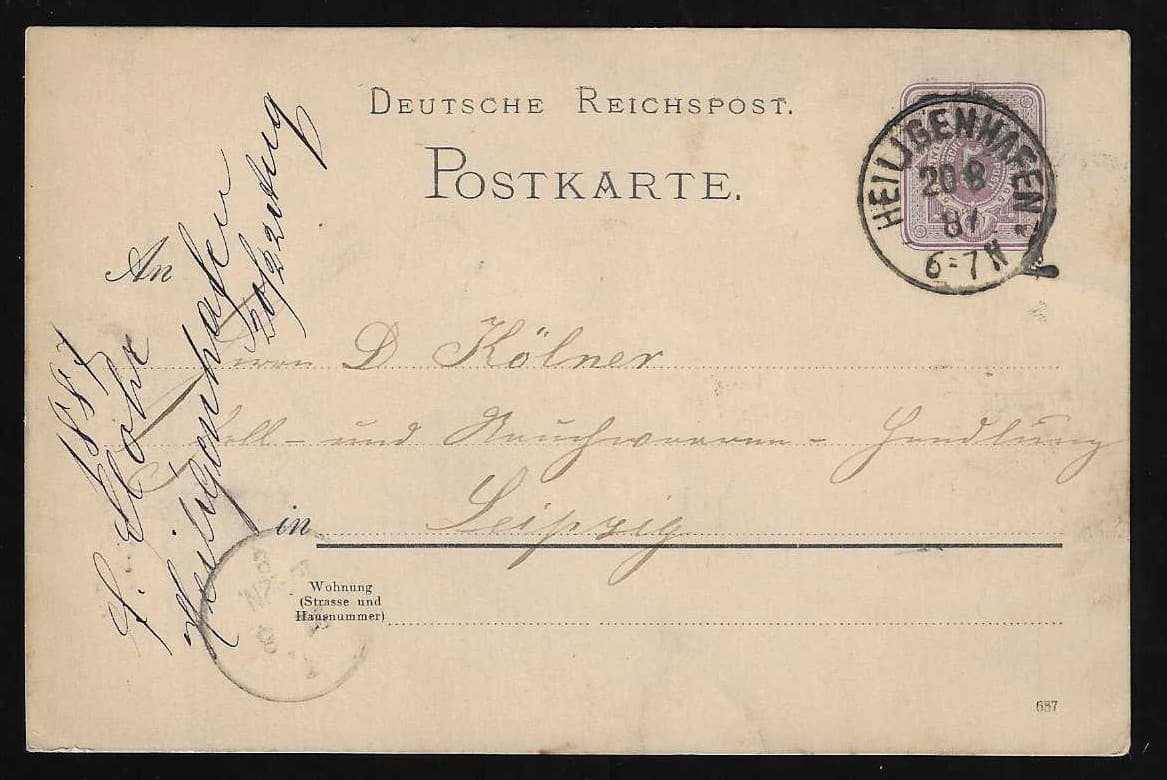 DEUTSCHE REICHSPOST.
POSTKARTE.
HEILIGENHAFEN
20 8
87
6-7 N
An
Herrn D Kölner
Fell- und Rauchwaaren-Handlung
in Leipzig
Wohnung
(Strasse und
Hausnummer)
687
1887
Heiligenhafen